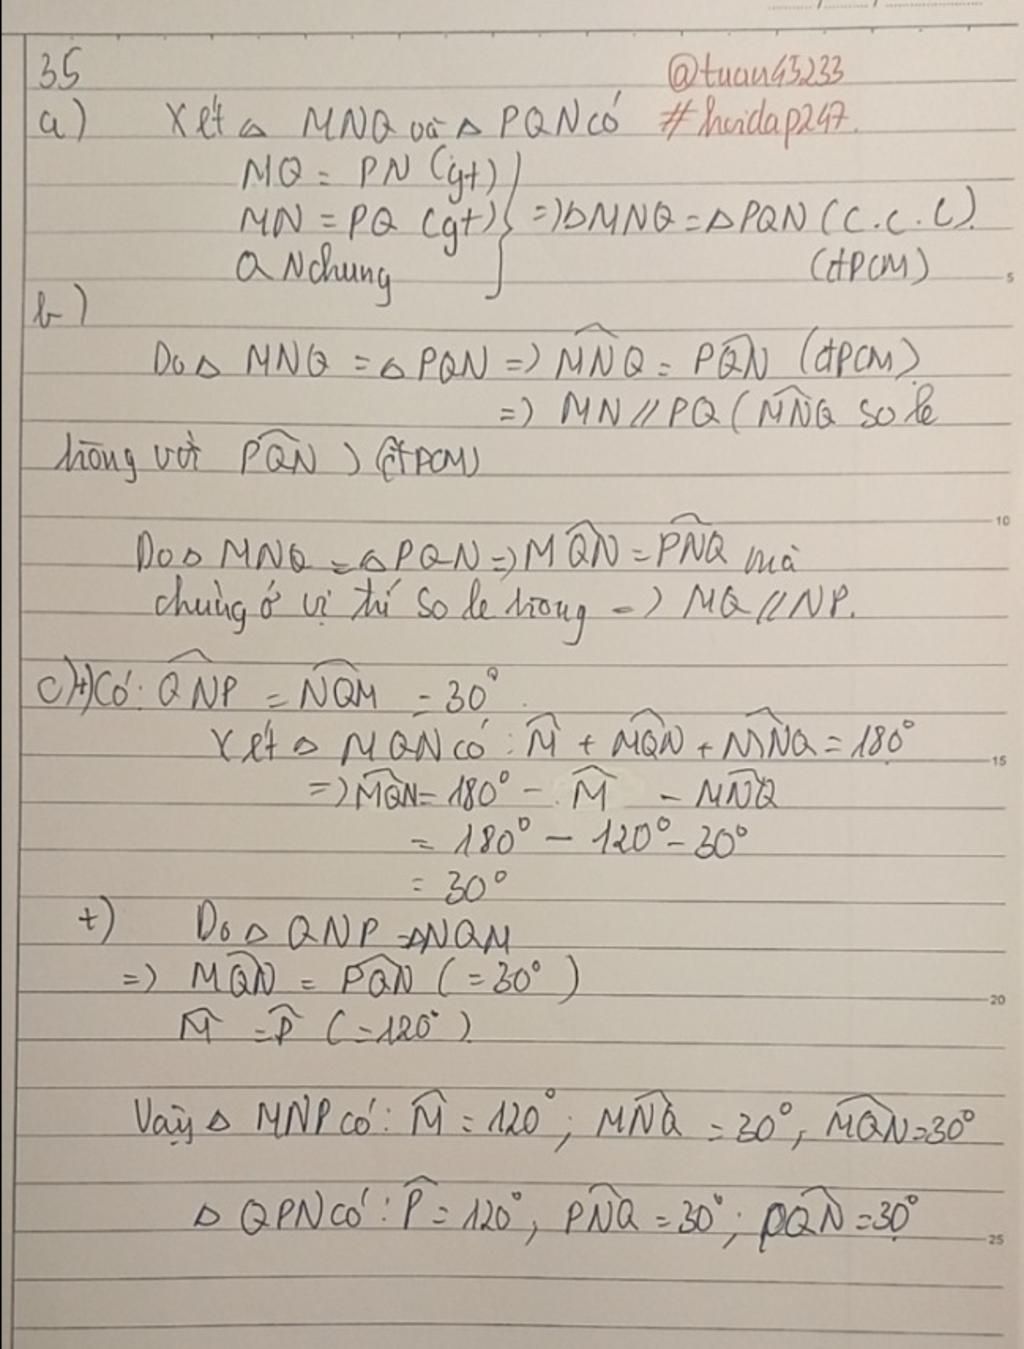 35
@tuan45233
a) Xét Δ MNQ và Δ PQN có #hoidap247.
MQ = PN (gt)
MN = PQ (gt) } => ΔMNQ = Δ PQN (C.C.C).
QN chung (đPCM)
b)
Do Δ MNQ = Δ PQN => \widehat{MNQ} = \widehat{PQN} (đPCM)
=> MN // PQ ( \widehat{MNQ} so le
trong với \widehat{PQN} ) (đPCM)
Do Δ MNQ = Δ PQN => \widehat{MQN} = \widehat{PNQ} mà
chúng ở vị trí so le trong => MQ // NP.
c) +) Có: \widehat{QNP} = \widehat{NQM} = 30°.
Xét Δ MQN có: \widehat{M} + \widehat{MQN} + \widehat{MNQ} = 180°
=> \widehat{MQN} = 180° - \widehat{M} - \widehat{MNQ}
= 180° - 120° - 30°
= 30°
+) Do Δ QNP = ΔNQM
=> \widehat{MQN} = \widehat{PQN} (= 30°)
\widehat{M} = \widehat{P} (= 120°)
Vậy Δ MNP có: \widehat{M} = 120°; \widehat{MNQ} = 30°, \widehat{MQN} = 30°
Δ QPN có: \widehat{P} = 120°, \widehat{PNQ} = 30°; \widehat{PQN} = 30°
5
10
15
20
25